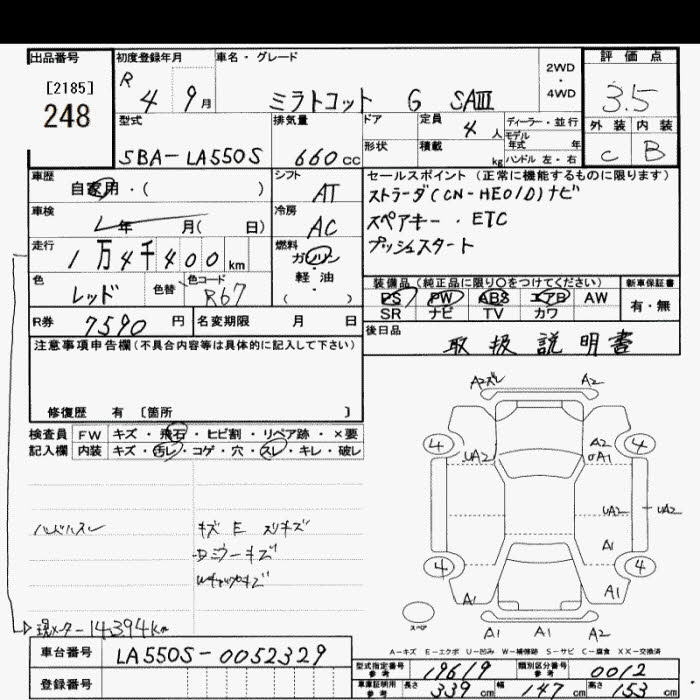 出品番号 初度登録年月 車名・グレード 評価点
[2185]
248
R 4 9月 ミラトコット G SAⅢ 2WD・4WD 3.5
型式 排気量 ドア 定員 4人 ディーラー・並行 外装 内装
モデル年式 年
SBA-LA550S 660cc 形状 積載 kg ハンドル 左・右 C B
車歴 シフト セールスポイント(正常に機能するものに限ります)
自家用・( ) AT ストラーダ(CN-HE01D)ナビ
車検 冷房 スペアキー・ETC
年 月( 日) AC プッシュスタート
走行 燃料
1万4千400km ガソリン・軽油・( )
色 色替 色コード 装備品(純正品に限り○をつけてください) 新車保証書
レッド R67 PS PW ABS エアB AW 有・無
SR ナビ TV カワ
R券 7590円 名変期限 月 日 後日品
取扱説明書
注意事項申告欄(不具合内容等は具体的に記入して下さい)
修復歴 有 〔箇所 〕
検査員 FW キズ・飛石・ヒビ割・リペア跡・×要
記入欄 内装 キズ・汚レ・コゲ・穴・スレ・キレ・破レ
A2ズレ A2
4 4
UA2 A2
A1
UA2 UA2
A1
4 4
A1 A1
スペア
A1 A1 A2
ハンドルスレ キズ E スリキズ
ミラーキズ
現メーター 14,394km
A－キズ E－エクボ U－凹み W－補修跡 S－サビ C－腐食 XX－交換済
車台番号 LA550S-0052329
型式指定番号 参考 19619 類別区分番号 参考 0012
登録番号
車庫証明用 参考 長さ 339cm 幅 147cm 高さ 153cm